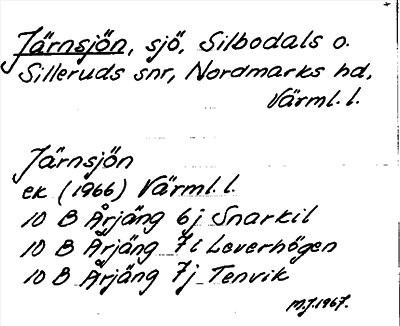 Järnsjön, sjö, Silbodals o.
Silleruds snr, Nordmarks hd,
Värml. l.
Järnsjön
ek (1966) Värml. l.
10 B Årjäng 6j Snarkil
10 B Årjäng 7i Leverhögen
10 B Årjäng 7j Tenvik
M.J. 1967.